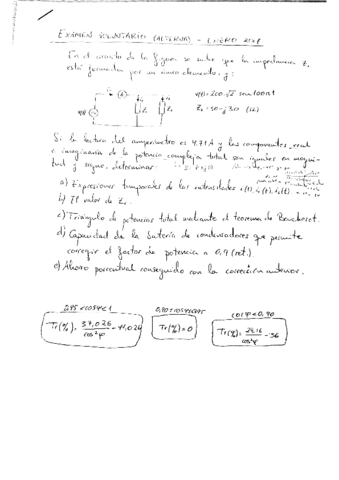 EXAMEN VOLUNTARIO (ALTERNA) - ENERO
En el circuito de la figura se sabe que la impedancia Z₁
está formada por un único elemento, y:
Si la lectura del amperímetro es 4.71 A y las componentes real
e imaginaria de la potencia compleja total son iguales en magni-
tud y signo, determinar:
a) Expresiones temporales de las intensidades i(t), i₁(t), i₂(t).
b) El valor de Z₁.
c) Triángulo de potencias total mediante el teorema de Boucherot.
d) Capacidad de la batería de condensadores que permite
corregir el factor de potencia a 0,9 (ret.).
e) Ahorro porcentual conseguido con la corrección anterior.
0,95 < cosφ < 1
Tr(%) = 37,026/cos²φ - 41,026
Tr(%) = 0
cosφ < 0,90
Tr(%) = 29,16/cos²φ - 36